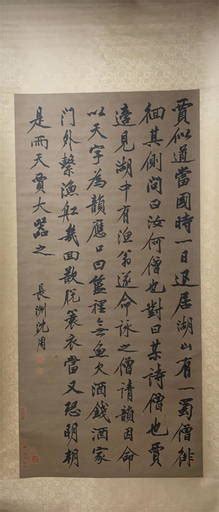 賈似道當國時一日退居湖山有一蜀僧俳
徊其側問曰汝何僧也對曰某詩僧也賈
適見湖中有漁翁遂命詠之僧請韻因命
以天字為韻應口曰籃裡無魚欠酒錢酒家
門外繫漁船幾回欲脫蓑衣當又恐明朝
是雨天賈大器之
長洲沈周